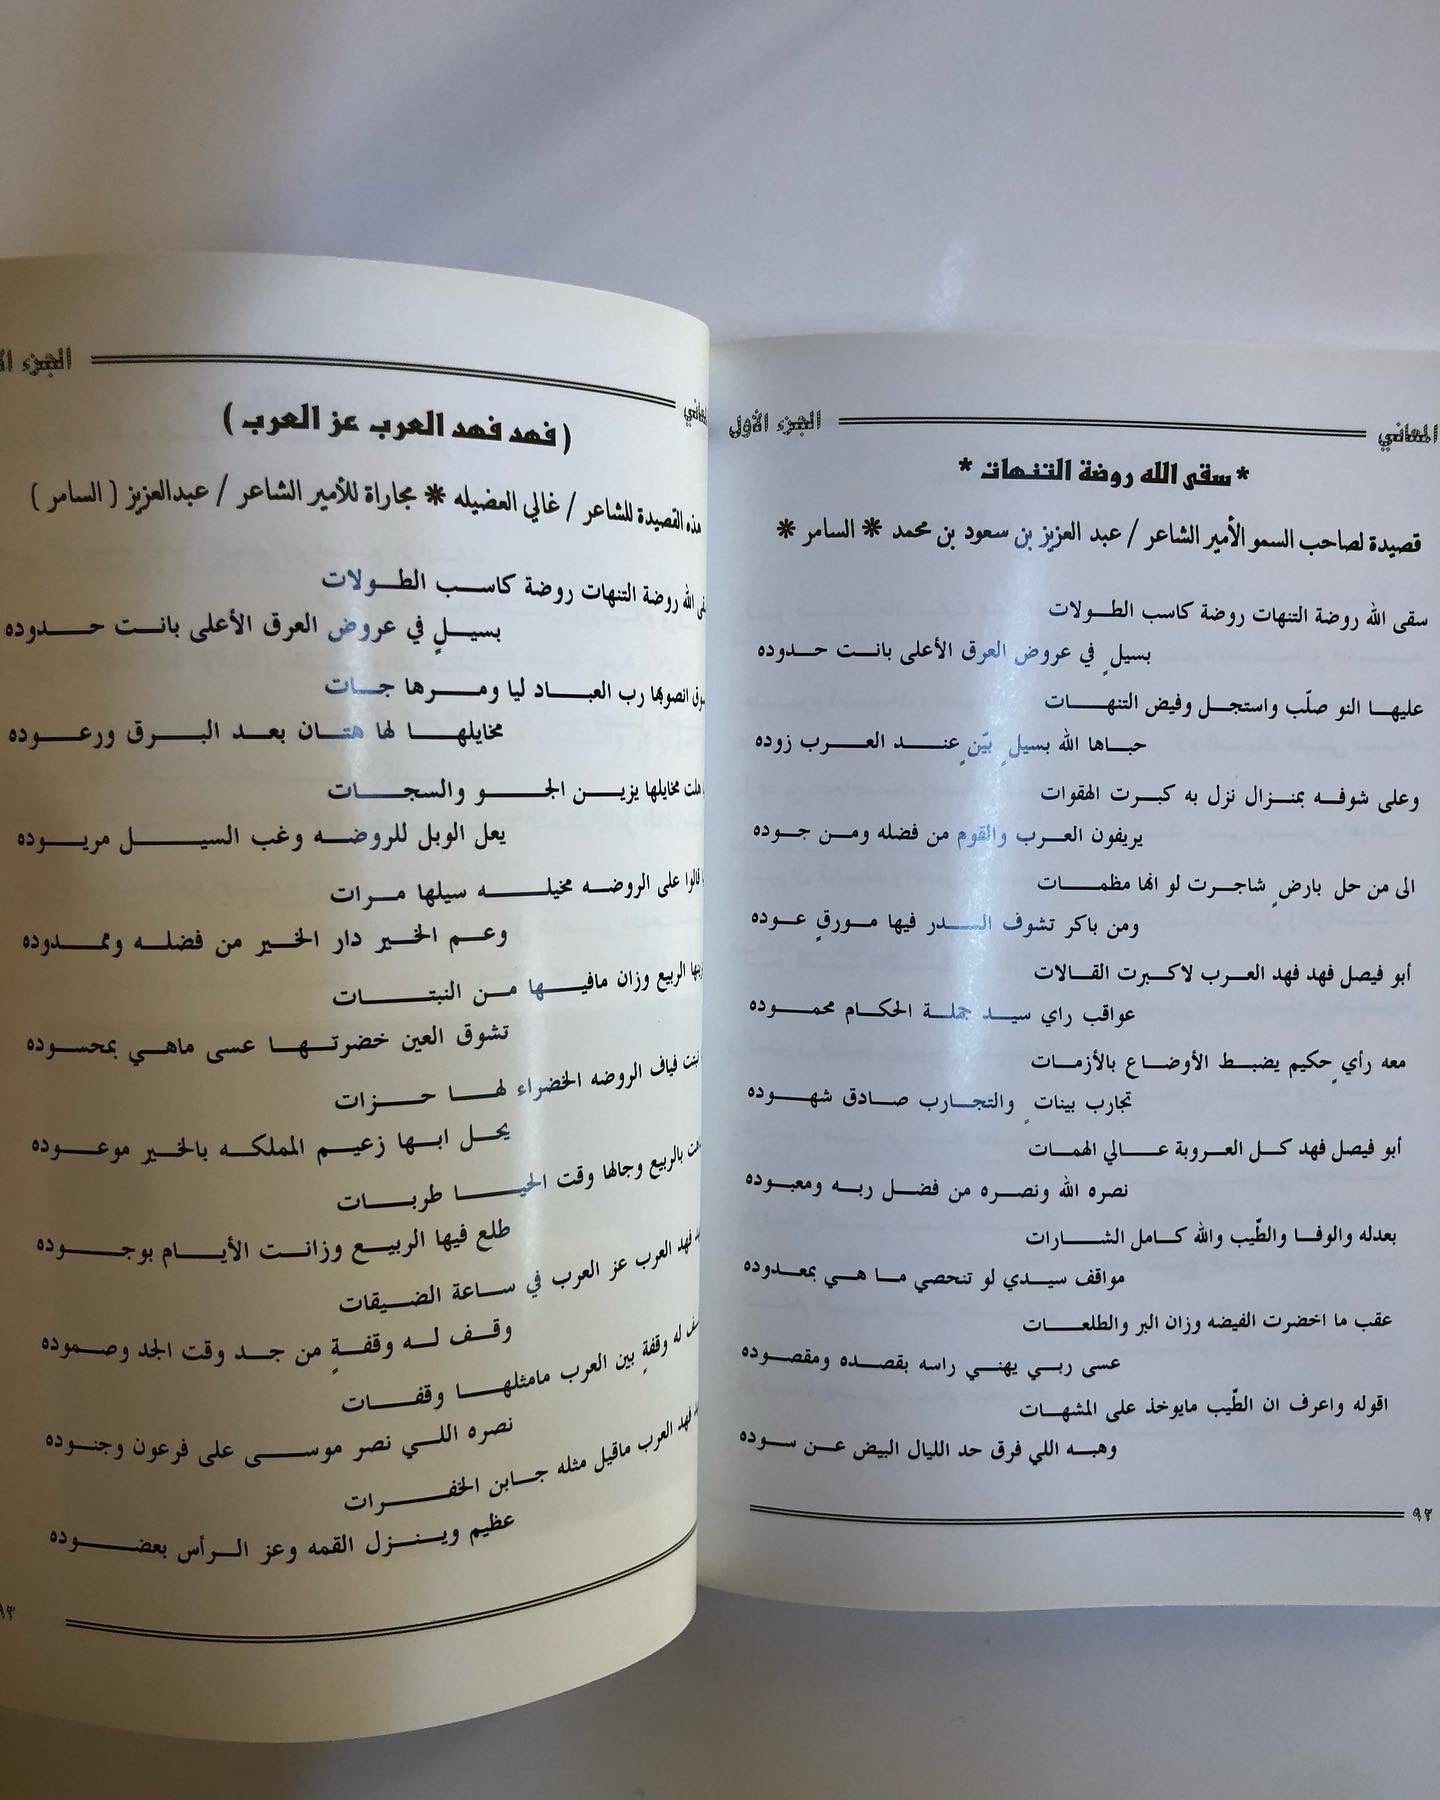 المعاني الجزء الأول
* سقى الله روضة التنهات *
قصيدة لصاحب السمو الأمير الشاعر / عبد العزيز بن سعود بن محمد * السامر *
سقى الله روضة التنهات روضة كاسب الطولات
بسيلٍ في عروض العرق الأعلى بانت حدوده
عليها النو صلّب واستجل وفيض التنهات
حباها الله بسيلٍ بيّنٍ عند العرب زوده
وعلى شوفه بمنزال نزل به كبرت الهقوات
يريفون العرب والقوم من فضله ومن جوده
الى من حل بارضٍ شاجرت لو انها مظمات
ومن باكر تشوف السدر فيها مورقٍ عوده
أبو فيصل فهد فهد العرب لاكبرت القالات
عواقب راي سيد جملة الحكام محموده
معه رأيٍ حكيم يضبط الأوضاع بالأزمات
تجارب بيناتٍ والتجارب صادق شهوده
أبو فيصل فهد كل العروبة عالي الهمات
نصره الله ونصره من فضل ربه ومعبوده
بعدله والوفا والطّيب والله كامل الشارات
مواقف سيدي لو تنحصي ما هي بمعدوده
عقب ما اخضرت الفيضه وزان البر والطلعات
عسى ربي يهني راسه بقصده ومقصوده
اقوله واعرف ان الطّيب مايوخذ على المشهات
وهبه اللي فرق حد الليال البيض عن سوده
٩٢
الجزء
( فهد فهد العرب عز العرب )
هذه القصيدة للشاعر / غالي العضيله * مجاراة للأمير الشاعر / عبدالعزيز ( السامر )
الله روضة التنهات روضة كاسب الطولات
بسيلٍ في عروض العرق الأعلى بانت حدوده
رب العباد ليا ومرها جات
مخايلها لها هتان بعد البرق ورعوده
مخايلها يزين الجو والسجات
يعل الوبل للروضه وغب السيل مريوده
قالوا على الروضه مخيله سيلها مرات
وعم الخير دار الخير من فضله وممدوده
الربيع وزان مافيها من النبتات
تشوق العين خضرتها عسى ماهي بمحسوده
فياف الروضه الخضراء لها حزات
يحل ابها زعيم المملكه بالخير موعوده
بالربيع وجالها وقت الحيا طربات
طلع فيها الربيع وزانت الأيام بوجوده
فهد العرب عز العرب في ساعة الضيقات
وقف له وقفةٍ من جد وقت الجد وصموده
له وقفةٍ بين العرب مامثلها وقفات
نصره اللي نصر موسى على فرعون وجنوده
فهد العرب ماقيل مثله جابن الخفرات
عظيم وينزل القمه وعز الرأس بعضوده
٩٣